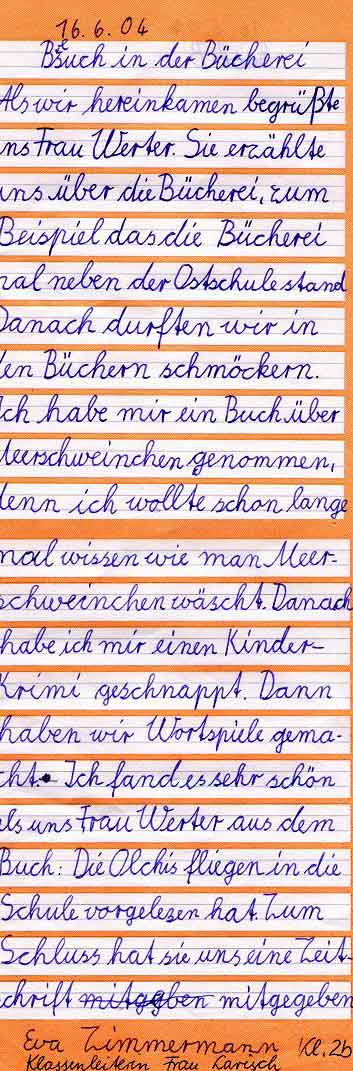 16.6.04
Besuch in der Bücherei
Als wir hereinkamen begrüßte
uns Frau Werter. Sie erzählte
uns über die Bücherei, zum
Beispiel das die Bücherei
mal neben der Ostschule stand
Danach durften wir in
den Büchern schmöckern.
Ich habe mir ein Buch über
Meerschweinchen genommen,
denn ich wollte schon lange
mal wissen wie man Meer-
schweinchen wäscht. Danach
habe ich mir einen Kinder-
Krimi geschnappt. Dann
haben wir Wortspiele gema-
cht. Ich fand es sehr schön
als uns Frau Werter aus dem
Buch: Die Olchis fliegen in die
Schule vorgelesen hat. Zum
Schluss hat sie uns eine Zeit-
schrift mitgeben mitgegeben
Eva Zimmermann Kl. 2b
Klassenleitern Frau Karisch